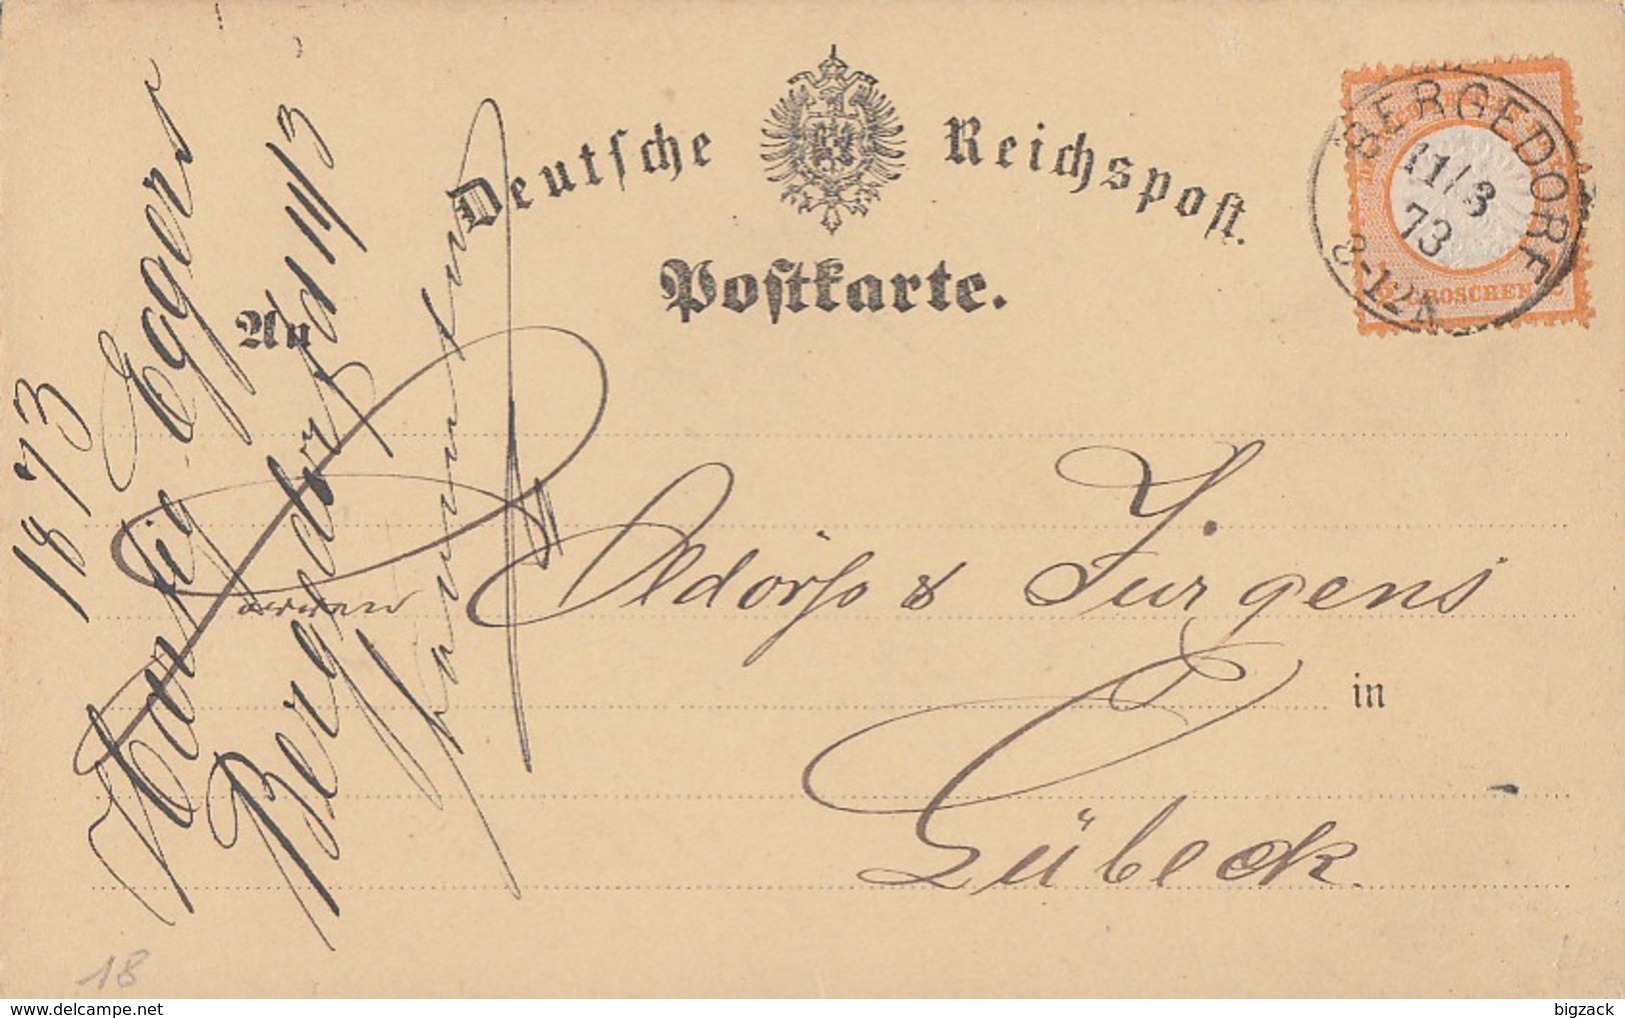 Deutsche Reichspost.
Postkarte.
BERGEDORF
11/3
73
8-12N
GROSCHEN
An
Herren Aldorfs & Jürgens
in
Lübeck.
1873
Hartig Eggers
Bergedorf d 11/3
18
delcampe.net
bigzack